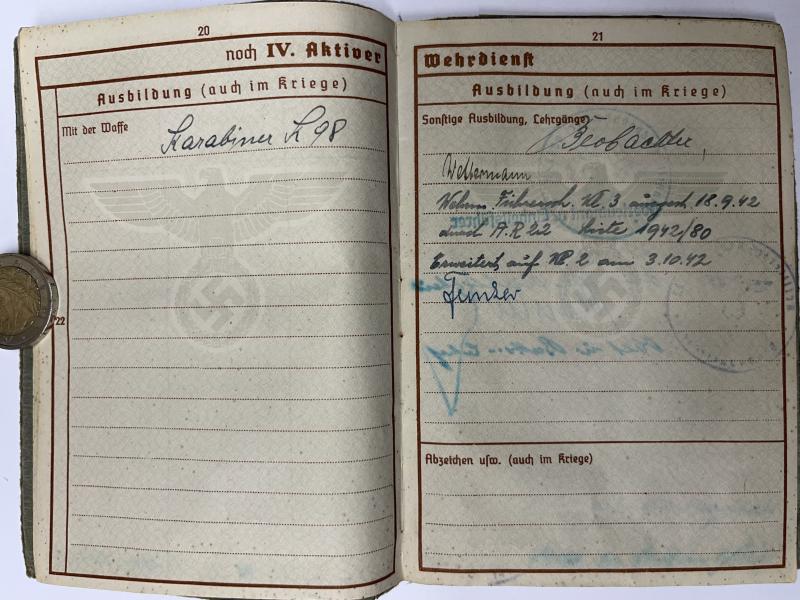 20
noch IV. Aktiver
Ausbildung (auch im Kriege)
Mit der Waffe
Karabiner K 98
22
21
Wehrdienst
Ausbildung (auch im Kriege)
Sonstige Ausbildung, Lehrgänge
Beobachter,
Wehrm. Führersch. Kl. 3 ausgest. 18.9.42
durch A.R 22 Liste 1942/80
Erweitert auf Kl. 2 am 3.10.42
Funker
Abzeichen usw. (auch im Kriege)